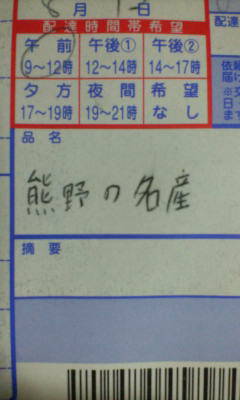 8月1日
配達時間帯希望
午前 午後① 午後②
9～12時 12～14時 14～17時
夕方 夜間 希望
17～19時 19～21時 なし
品名
熊野の名産
摘要
配達
依頼
届け